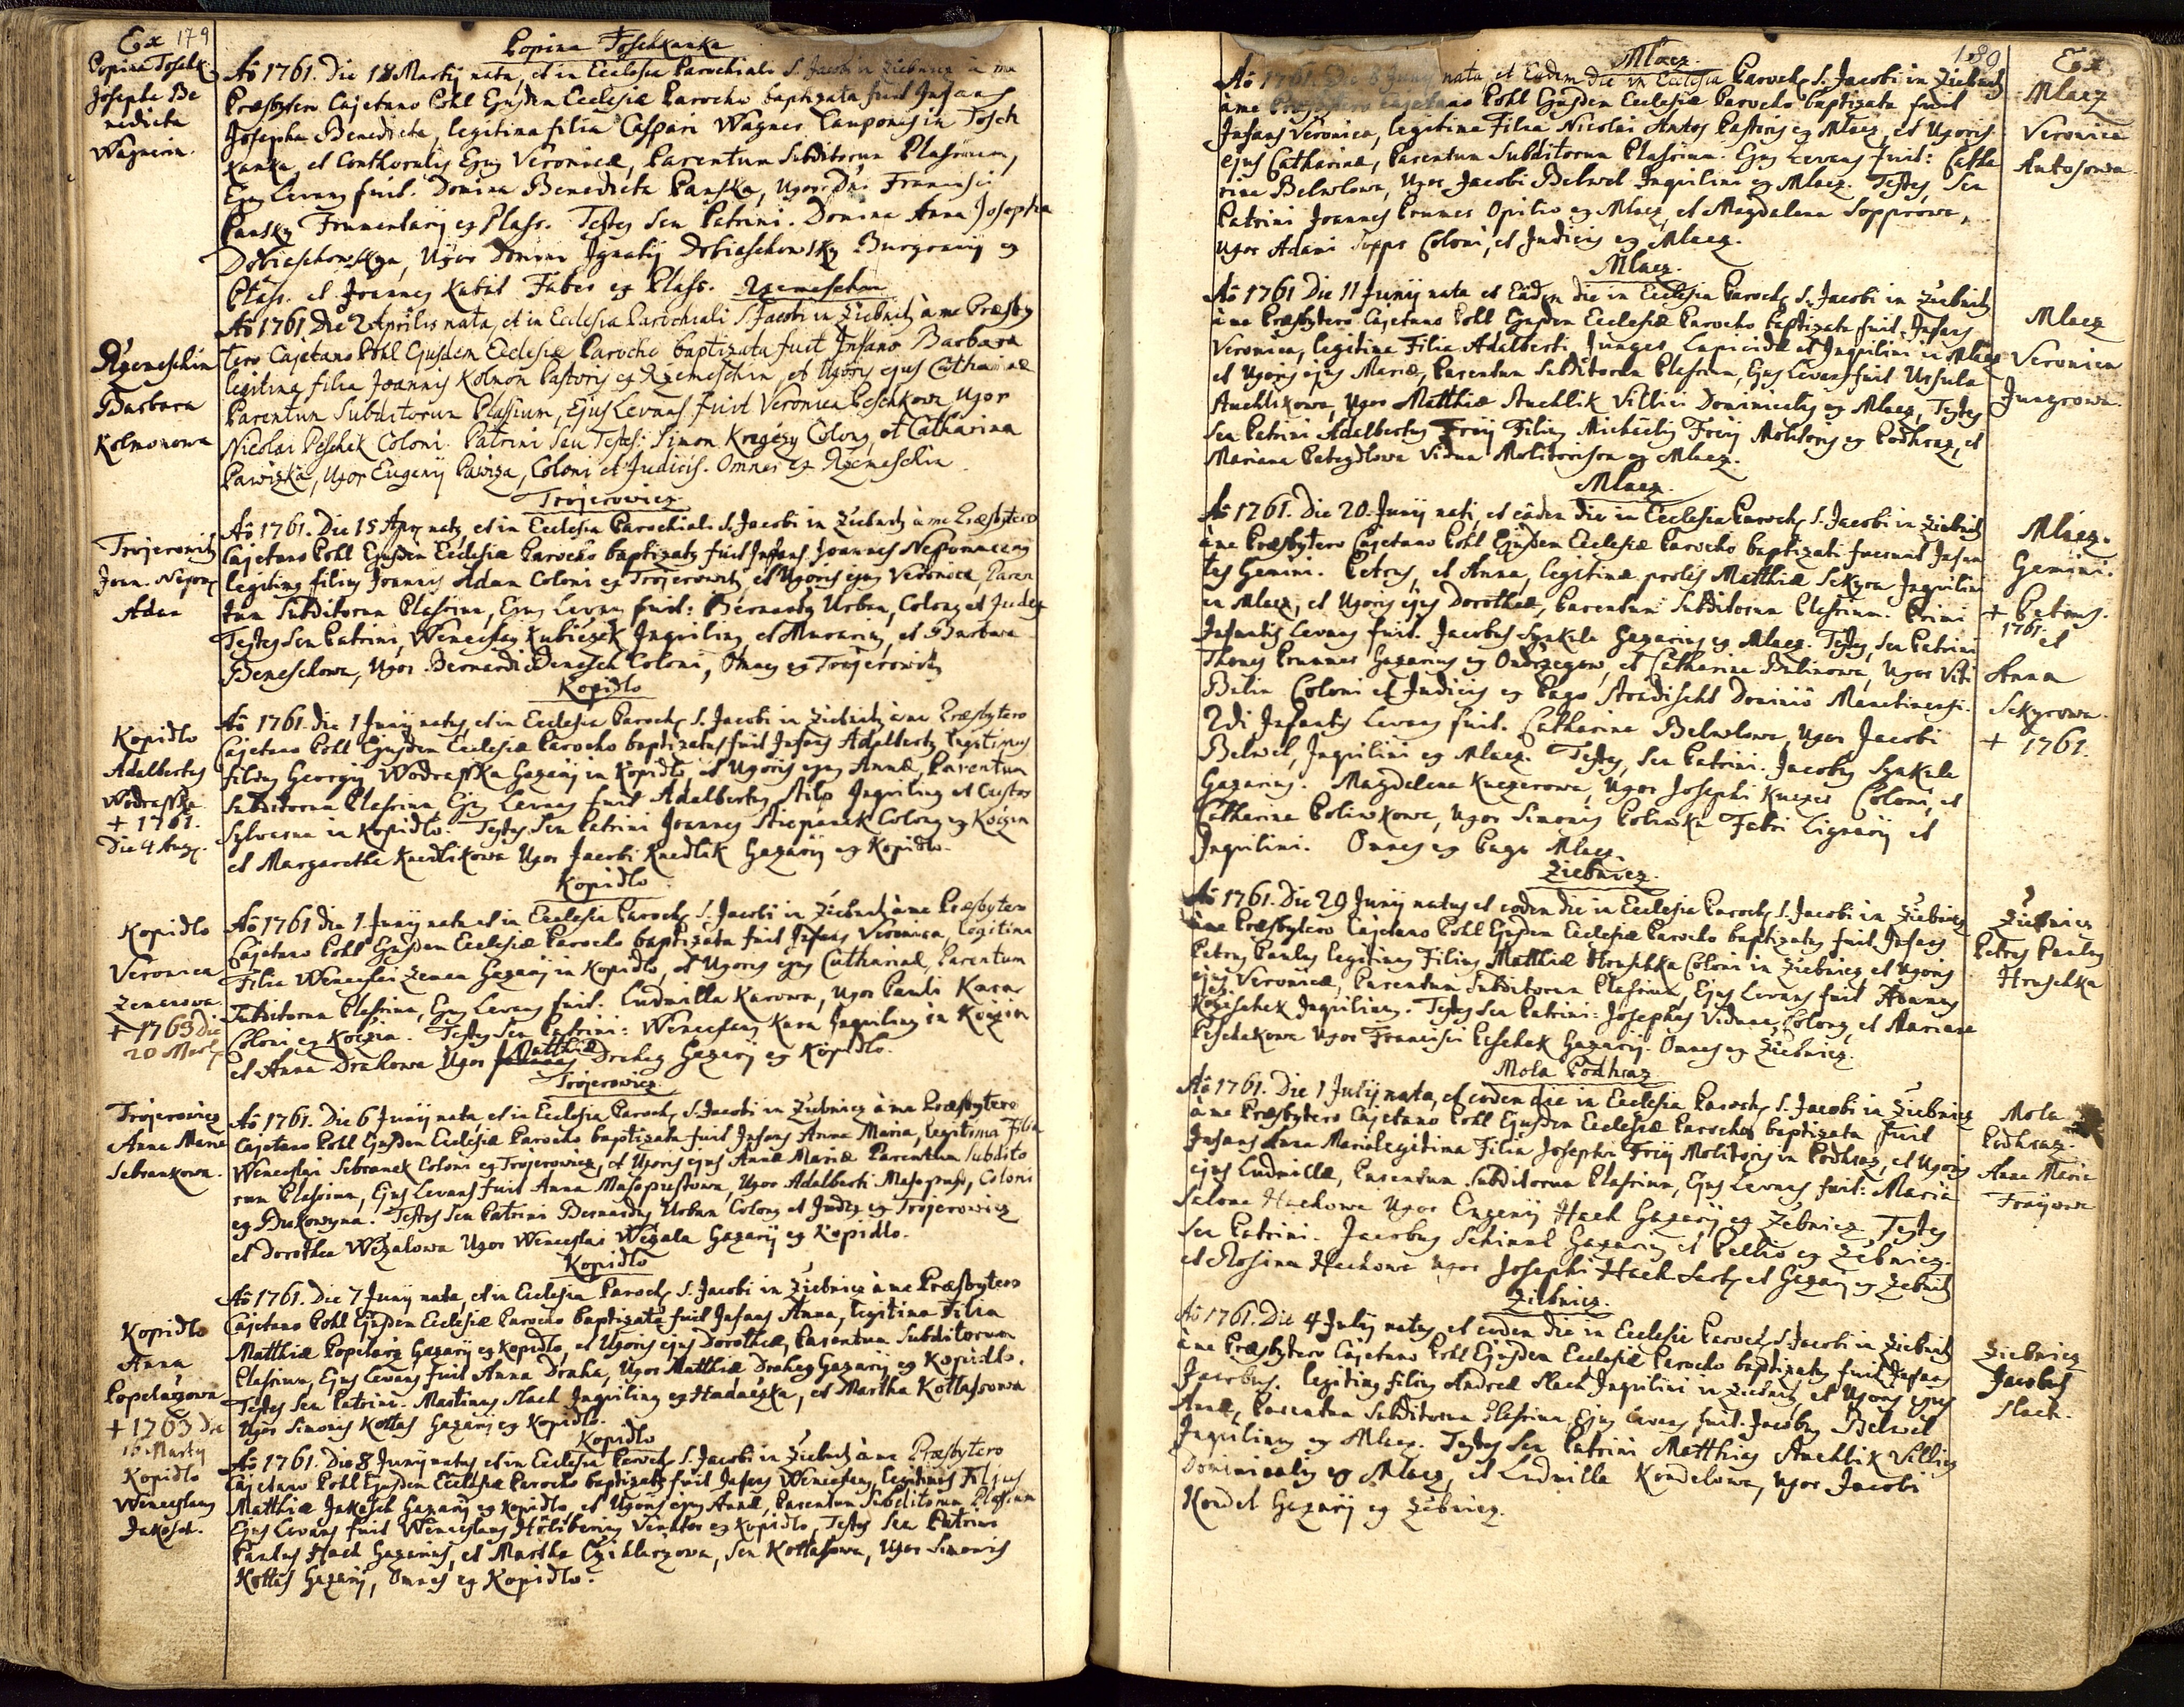 Ex 179
Popina Toschk.
Josepha Be
nedicta
Wagnerin.
Popina Toschkanka
Aõ 1761. Die 18 Martij nata, et in Ecclesia Parochiali S. Jacobi in Ziebnicz à me
Præsbytero Cajetano Pohl Ejusdem Ecclesiæ Parocho baptizata fuit Infans
Josepha Benedicta, legitima filia Caspari Wagner Cauponis in Tosch
kanka, et Conthoralis Ejus Veronicæ, Parentum Subditorum Plassium,
Ejus Levans fuit. Domina Benedicta Panska, Uxor Dni Francisci
Pansky Frumentarij ex Plass. Testes Seu Patrini. Domina Anna Josepha
Dobiaschowskyn, Uxor Domini Ignatij Dobiaschowsky Burgravij ex
Plass. et Joannes Kabát Faber ex Plass.
Rzemeschin
Rzemeschin
Barbara
Kolmonowa
Aõ 1761 Die 2 Aprilis nata, et in Ecclesia Parochiali S Jacobi in Ziebnitz à me Præsby
tero Cajetano Pohl Ejusdem Ecclesiæ Parocho baptizata fuit Infans Barbara
legitima filia Joannis Kolmon Pastoris ex Rzemeschin, et Uxoris ejus Catharinæ
Parentum Subditorum Plassium, Ejus Levans fuit Veronica Peschkowa Uxor
Nicolai Peschek Coloni. Patrini Seu Testes: Simon Kregczy Colonus, et Catharina
Pawizka, Uxor Eugenij Pawiza, Coloni et Judicis. Omnes ex Rzemeschin.
Trojerowicz
Trojerowitz
Joan. Nepom
Adam
Aõ 1761. Die 15 Apr natus, et in Ecclesia Parochiali S. Jacobi in Ziebnitz à me Præsbytero
Cajetano Pohl Ejusdem Ecclesiæ Parocho baptizatus fuit Infans Joannes Nepomucenus
legitimus filius Joannis Adam Coloni ex Trojerowitz, et Uxoris ejus Veronicæ, Paren
tum Subditorum Plassium, Ejus Levans fuit: Bernardus Urban, Colonus et Judex
Testes Seu Patrini, Wenceslaus Kubiczek Inquilinus et Murarius, et Barbara
Beneschowa, Uxor Bernardi Benesch Coloni, Omnes ex Trojerowitz
Kopidlo
Kopidlo
Adalbertus
Wodrasska
+ 1761.
Die 4 Aug.
Aõ 1761. die 1 Junij natus, et in Ecclesia Paroch S. Jacobi in Ziebnitz à me Præsbytero
Cajetano Pohl Ejusdem Ecclesiæ Parocho baptizatus fuit Infans Adalbertus legitimus
filius Georgij Wodrasska Gazarij in Kopidlo, et Uxoris ejus Annæ, Parentum
Subditorum Plassium Ejus Levans fuit Adalbertus Stilp Inquilinus et Custos
Sylvarum in Kopidlo. Testes Seu Patrini Joannes Stiepanek Colonus ex Koczin
et Margaretha Knedlikowa Uxor Jacobi Knedlik Gazarij ex Kopidlo.
Kopidlo
Kopidlo
Veronica
Zemanowa
+ 1763 die
20 Mart
Aõ 1761 die 1 Junij nata et in Ecclesia Paroch S. Jacobi in Ziebnitz à me Præsbytero
Cajetano Pohl Ejusdem Ecclesiæ Parocho baptizata fuit Infans Veronica, Legitima
Filia Wenceslai Zeman Gazarij in Kopidlo, et Uxoris ejus Catharinæ, Parentum
Subditorum Plassium, Ejus Levans fuit: Ludmilla Karowa, Uxor Pauli Kara
Coloni ex Koczin. Testes Seu Patrini: Wenceslaus Kara Inquilinus in Koczin
et Anna Drahowa Uxor Matthiæ Draheg Gazarij ex Kopidlo.
Trojerowicz
Trojerowicz
Anna Maria
Sebrankowa
Aõ 1761. Die 6 Junij nata, et in Ecclesia Paroch S. Jacobi in Ziebnicz à me Præsbytero
Cajetano Pohl Ejusdem Ecclesiæ Parocho baptizata fuit Infans Anna Maria, legitima Filia
Wenceslai Sebranek Coloni ex Trojerowicz, et Uxoris ejus Annæ Mariæ Parentum Subdito
rum Plassium, Ejus Levans fuit Anna Masopustowa, Uxor Adalberti Masopust, Coloni
ex Bukowyna. Testes Seu Patrini Bernardus Urban Colonus et Judex ex Trojerowicz
et Dorothea Wezalowa Uxor Wenceslai Wezala Gazarij ex Kopidlo.
Kopidlo
Kopidlo
Anna
Popelarzowa
+ 1763 Die
16 Martij
Aõ 1761. Die 7 Junij nata, et in Ecclesia Paroch S. Jacobi in Ziebnicz à me Præsbytero
Cajetano Pohl Ejusdem Ecclesiæ Parocho baptizata fuit Infans Anna, legitima Filia
Matthiæ Popelarz Gazarij ex Kopidlo, et Uxoris ejus Dorotheæ, Parentum Subditorum
Plassium, Ejus Levans fuit Anna Draha, Uxor Matthiæ Draheg Gazarij ex Kopidlo.
Testes Seu Patrini. Martinus Slach Inquilinus ex Hadaczka, et Martha Kottassowa
Uxor Simonis Kottas Gazarij ex Kopidlo.
Kopidlo
Kopidlo
Wenceslaus
Jakosch.
Aõ 1761. Die 8 Junij natus et in Ecclesia Paroch S. Jacobi in Ziebnitz à me Præsbytero
Cajetano Pohl Ejusdem Ecclesiæ Parocho baptizatus fuit Infans Wenceslaus, legitimus Filius
Matthiæ Jakosch Gazarij ex Kopidlo, et Uxoris ejus Annæ, Parentum Subditorum Plassium
Ejus Levans fuit Wenceslaus Venator ex Kopidlo, Testes Seu Patrini
Paulus Hach Gazarius, et Martha Seu Kottassowa, Uxor Simonis
Kottas Gazarij, Omnes ex Kopidlo.
180
Ex
Mlacz
Veronica
Antosowa
Mlacz.
Aõ 1761. Die 8 Junij nata, et Eodem die in Ecclesia Paroch S. Jacobi in Ziebnitz
à me Præsbytero Cajetano Pohl Ejusdem Ecclesiæ Parocho baptizata fuit
Infans Veronica, legitima Filia Nicolai Antos Pastoris ex Mlacz, et Uxoris
ejus Catharinæ, Parentum Subditorum Plassium. Ejus Levans fuit: Catha
rina Belwlowa, Uxor Jacobi Belwel Inquilini ex Mlacz. Testes, Seu
Patrini Joannes Prunner Opilio ex Mlacz, et Magdalena Topprowa,
Uxor Adami Toppr Coloni, et Judicis ex Mlacz.
Mlacz.
Mlacz
Veronica
Jungrowa
Aõ 1761 Die 11 Junij nata et Eâdem die in Ecclesia Paroch S. Jacobi in Ziebnitz
à me Præsbytero Cajetano Pohl Ejusdem Ecclesiæ Parocho baptizata fuit Infans
Veronica, legitima Filia Adalberti Junger Lapicidæ et Inquilini in Mlacz
et Uxoris ejus Mariæ, Parentum Subditorum Plassium, Ejus Levans fuit Ursula
Stuchlikowa, Uxor Matthiæ Stuchlik Villici Dominicalis ex Mlacz, Testes
Seu Patrini Adalbertus Freÿ Filius Michaelis Freÿ Molitoris ex Podhraz, et
Mariana Vidua ex Mlacz.
Mlacz.
Mlacz.
Gemini.
+ Petrus.
1761.
et
Anna
Sekyrowa.
+ 1761.
Aõ 1761. Die 20. Junij nati, et eâdem die in Ecclesia Paroch S. Jacobi in Ziebnitz
à me Præsbytero Cajetano Pohl Ejusdem Ecclesiæ Parocho baptizati fuerunt Infan
tes Gemini. Petrus, et Anna, legitimæ prolis Matthiæ Sekyra Inquilini
in Mlacz, et Uxoris ejus Dorotheæ, Parentum Subditorum Plassium. Primi
Infantis Levans fuit. Jacobus Synkule Gazarius ex Mlacz. Testes, Seu Patrini
Thomas Prunner Gazarius ex Ondrzegow, et Catharina Bulinowa, Uxor Viti
Bulin Coloni et Judicis ex Pago Hradischt Dominio Manetinensi.
2di Infantis Levans fuit. Catharina Belwlowa, Uxor Jacobi
Belwel, Inquilini ex Mlacz. Testes, Seu Patrini. Jacobus Synkule
Gazarius. Magdalena Knezerowa, Uxor Josephi Knezer Coloni, et
Catharina Poliwkowa, Uxor Simonis Poliwka Fabri Lignarij et
Inquilini. Omnes ex Pago Mlacz.
Ziebnicz.
Ziebnicz
Petrus Paulus
Hruschka
Aõ 1761. Die 29 Junij natus et eodem die in Ecclesia Paroch S. Jacobi in Ziebnicz
à me Præsbytero Cajetano Pohl Ejusdem Ecclesiæ Parocho baptizatus fuit Infans
Petrus Paulus legitimus Filius Matthiæ Hruschka Coloni in Ziebnicz et Uxoris
ejus Veronicæ, Parentum Subditorum Plassium, Ejus Levans fuit Joannes
Inquilinus. Testes Seu Patrini: Josephus Colonus, et Mariana
Peschekowa Uxor Francisci Peschek Gazarij. Omnes ex Ziebnicz.
Mola Podhraz
Mola
Podhraz.
Anna Maria
Freÿowa
Aõ 1761. Die 1 Julij nata, et eodem die in Ecclesia Paroch S. Jacobi in Ziebnicz
à me Præsbytero Cajetano Pohl Ejusdem Ecclesiæ Parocho baptizata fuit
Infans Anna Maria legitima Filia Josephi Freÿ Molitoris in Podhraz, et Uxoris
ejus Ludmillæ, Parentum Subditorum Plassium, Ejus Levans fuit: Maria
Salome Hachowa Uxor Eugenij Hach Gazarij ex Zebnicz. Testes
Seu Patrini. Jacobus Schimel Gazarius et Pellio ex Zebnicz.
et Rosina Hachowa Uxor Josephi Hach et Gazarij ex Zebnitz
Ziebnicz.
Ziebnicz
Jacobus
Slach.
Aõ 1761. Die 4 Julij natus, et eodem die in Ecclesia Paroch S. Jacobi in Ziebnitz
à me Præsbytero Cajetano Pohl Ejusdem Ecclesiæ Parocho baptizatus fuit Infans
Jacobus. legitimus filius Andreæ Slach Inquilini in Ziebnitz, et Uxoris ejus
Annæ, Parentum Subditorum Plassium, Ejus Levans fuit. Jacobus Belwel
Inquilinus ex Mlacz. Testes Seu Patrini Matthias Stuchlik Villicus
Dominicalis ex Mlacz, et Ludmilla Kondelowa, Uxor Jacobi
Kondel Gazarij ex Zebnicz.